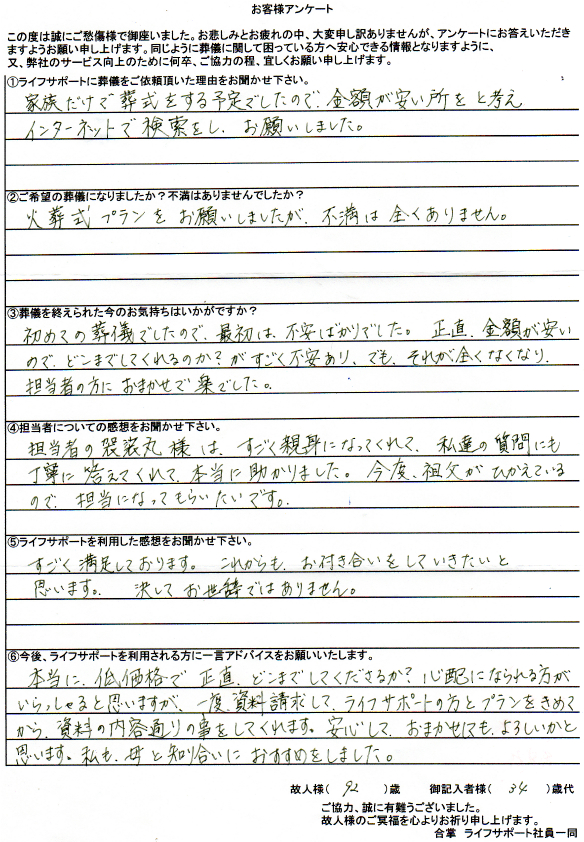 お客様アンケート
この度は誠にご愁傷様で御座いました。お悲しみとお疲れの中、大変申し訳ありませんが、アンケートにお答えいただき
ますようお願い申し上げます。同じように葬儀に関して困っている方へ安心できる情報となりますように、
又、弊社のサービス向上のために何卒、ご協力の程、宜しくお願い申し上げます。
①ライフサポートに葬儀をご依頼頂いた理由をお聞かせ下さい。
家族だけで葬式をする予定でしたので、金額が安い所をと考え
インターネットで検索をし、お願いしました。
②ご希望の葬儀になりましたか？不満はありませんでしたか？
火葬式プランをお願いしましたが、不満は全くありません。
③葬儀を終えられた今のお気持ちはいかがですか？
初めての葬儀でしたので、最初は、不安ばかりでした。正直、金額が安い
ので、どこまでしてくれるのか？がすごく不安あり、でも、それが全くなくなり、
担当者の方におまかせで楽でした。
④担当者についての感想をお聞かせ下さい。
担当者の袈裟丸様は、すごく親身になってくれて、私達の質問にも
丁寧に答えてくれて、本当に助かりました。今度、祖父がひかえている
ので、担当になってもらいたいです。
⑤ライフサポートを利用した感想をお聞かせ下さい。
すごく満足しております。これからも、お付き合いをしていきたいと
思います。決してお世辞ではありません。
⑥今後、ライフサポートを利用される方に一言アドバイスをお願いいたします。
本当に、低価格で正直、どこまでしてくださるか？心配になられる方が
いらっしゃると思いますが、一度、資料請求して、ライフサポートの方とプランをきめて
から、資料の内容通りの事をしてくれます。安心して、おまかせしても、よろしいかと
思います。私も、母と知り合いにおすすめをしました。
故人様（ 92 ）歳 御記入者様（ 34 ）歳代
ご協力、誠に有難うございました。
故人様のご冥福を心よりお祈り申し上げます。
合掌 ライフサポート社員一同